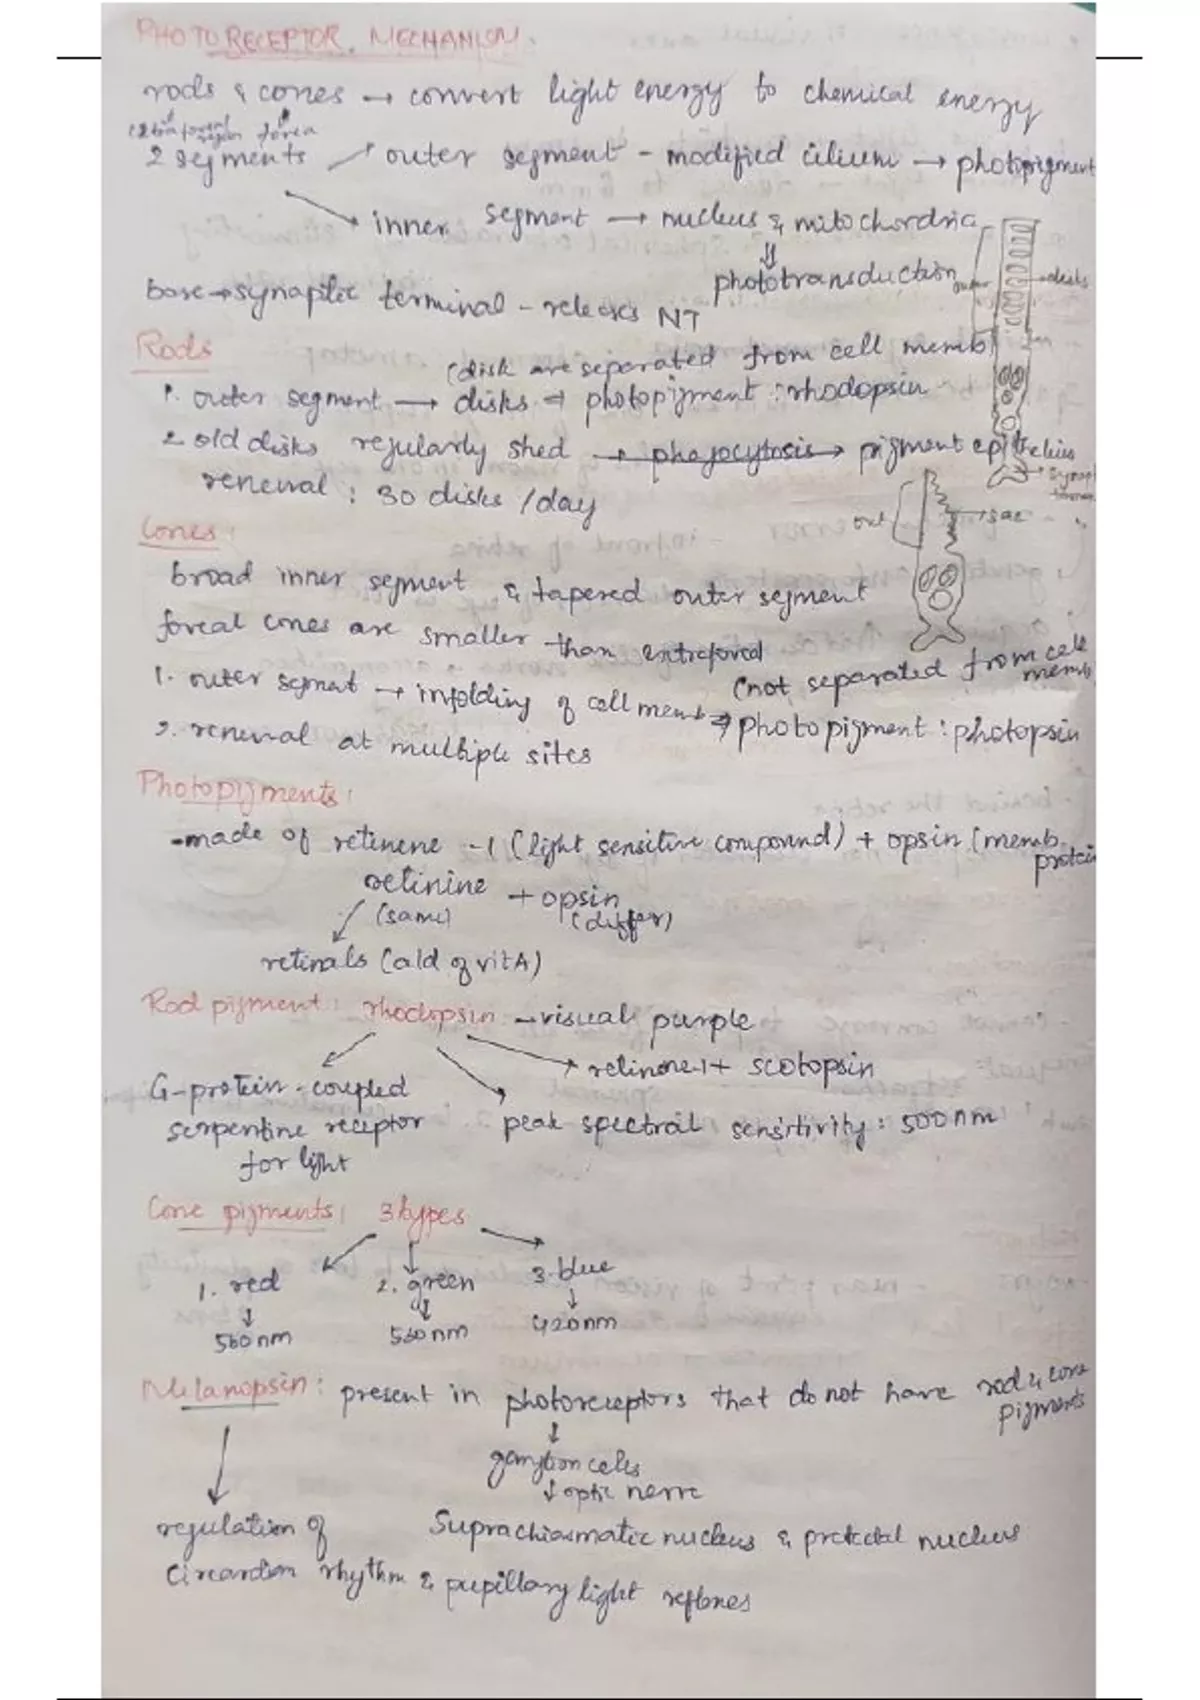 PHOTORECEPTOR MECHANISM.
rods & cones → convert light energy to chemical energy
extrafoveal region fovea
2 segments → outer segment - modified cilium → photopigment
→ inner segment → nucleus & mitochordria
⇓
phototransduction
outer
disks
base → synaptic terminal - releases NT
Rods
(disk are separated from cell memb)
1. outer segment → disks ⇒ photopigment : rhodopsin
2 old disks regularly shed → phagocytosis → pigment epithelium
renewal : 30 disks / day
out
sac
Cones :
broad inner segment & tapered outer segment
foveal cones are smaller than extrafoveal
(not separated from cell memb)
1. outer segment → infolding of cell memb ⇒ photopigment : photopsin
2. renewal at multiple sites
Photopigments :
- made of retinene - 1 (light sensitive compound) + opsin (memb protein
retinine + opsin
(same) (differ)
retinals (ald of vit A)
Rod pigment : rhodopsin - visual purple
→ retinene-1 + scotopsin
G-protein-coupled
serpentine receptor
for light
peak spectral sensitivity : 500nm
Cone pigments : 3 types
1. red 2. green 3. blue
560nm 530nm 420nm
Melanopsin : present in photoreceptors that do not have rod & cone pigments
↓
ganglion cells
↓ optic nerve
Suprachiasmatic nucleus & pretectal nucleus
regulation of
circardian rhythm & pupillary light reflexes